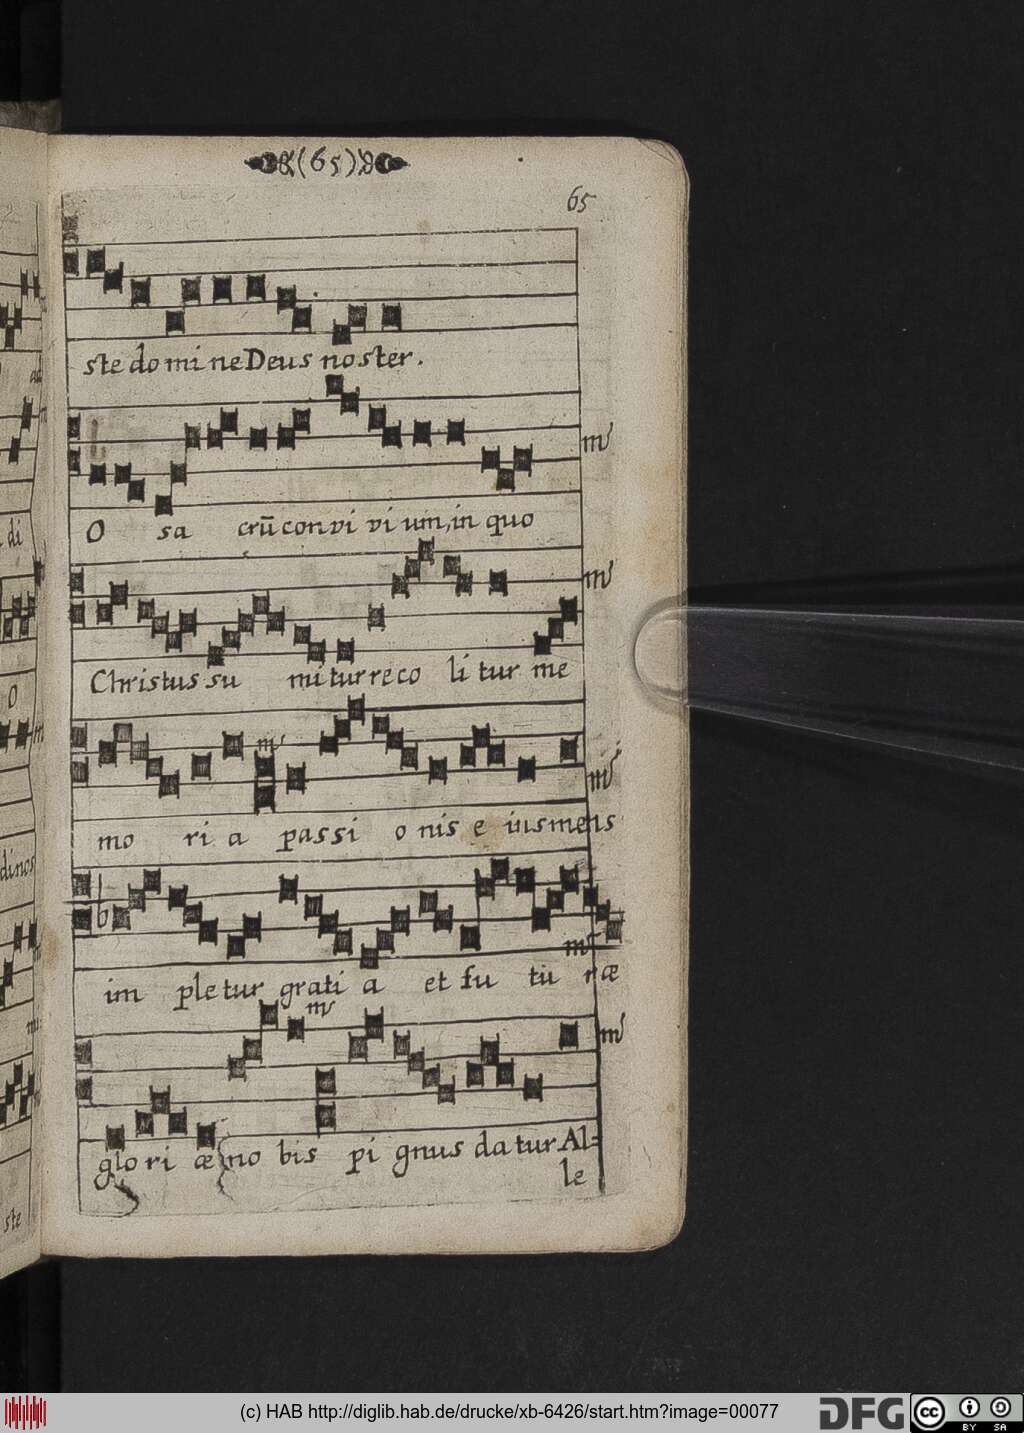 (65)
65
ste do mi ne Deus noster.
O sa crū con vi vi um, in quo
Christus su mi tur re co li tur me
mo ri a passi o nis e ius mens
im ple tur grati a et fu tu ræ
glo ri æ no bis pi gnus da tur Al=
le
di
O
di nos
ste
(c) HAB http://diglib.hab.de/drucke/xb-6426/start.htm?image=00077
DFG
cc BY SA